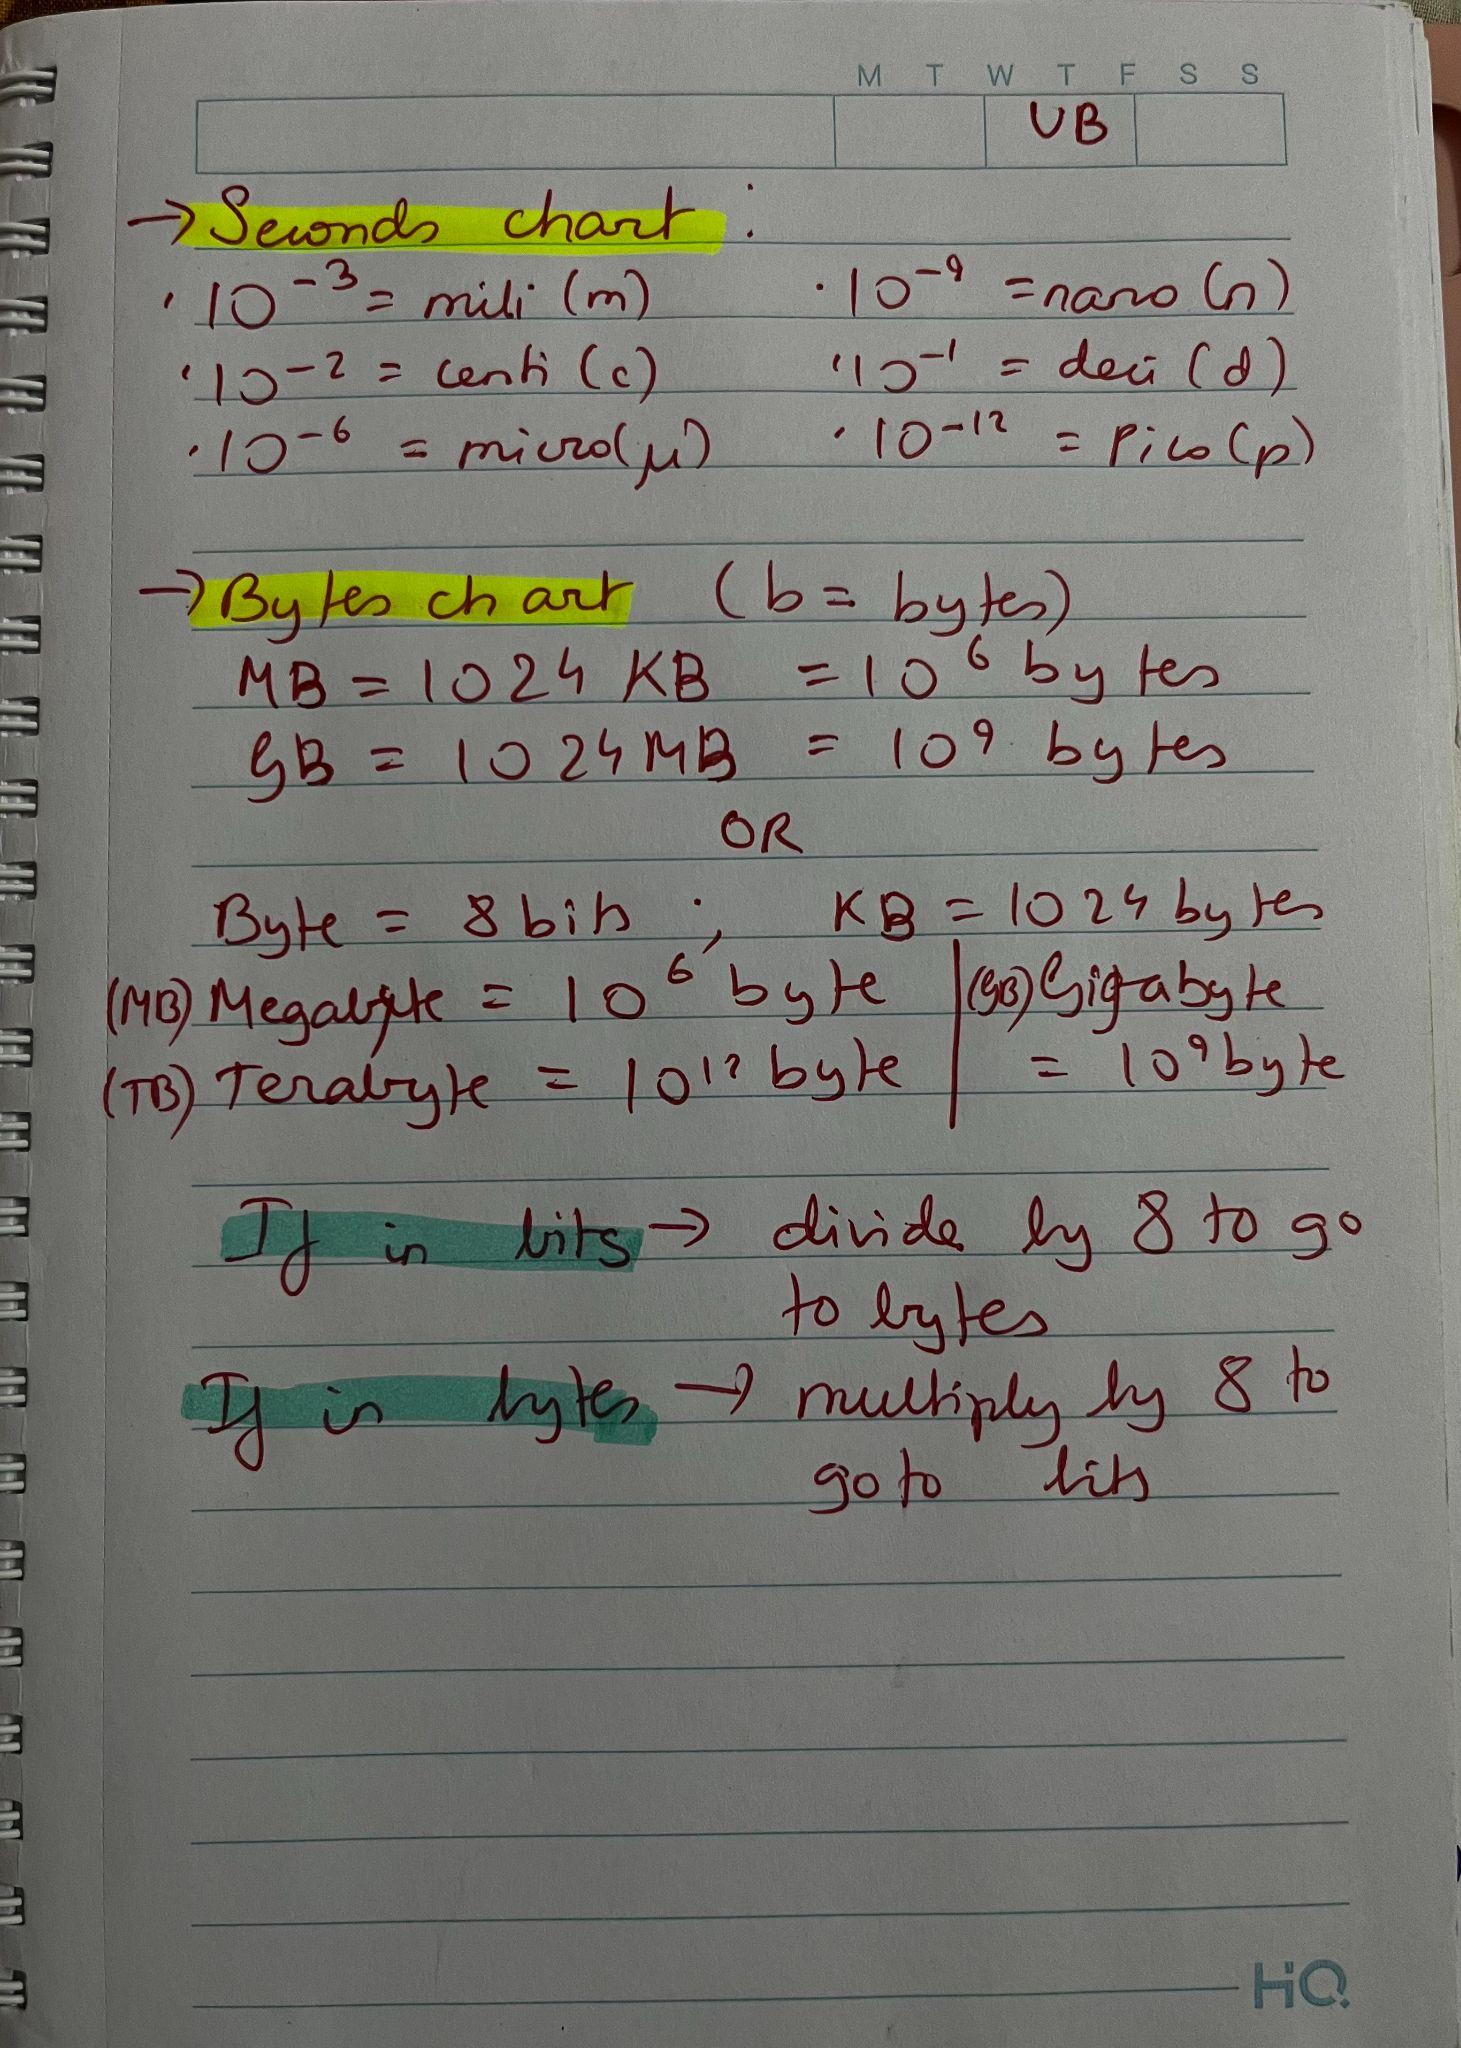 M T W T F S S
UB
→ Seconds chart :
· 10⁻³ = mili (m) · 10⁻⁹ = nano (n)
· 10⁻² = centi (c) · 10⁻¹ = deci (d)
· 10⁻⁶ = micro(μ) · 10⁻¹² = Pico (p)
→ Bytes chart (b = bytes)
MB = 1024 KB = 10⁶ bytes
GB = 1024 MB = 10⁹ bytes
OR
Byte = 8 bits ; KB = 1024 bytes
(MB) Megabyte = 10⁶ byte | (GB) Gigabyte
(TB) Terabyte = 10¹² byte | = 10⁹ byte
If in bits → divide by 8 to go
to bytes
If in bytes → multiply by 8 to
go to bits
HQ